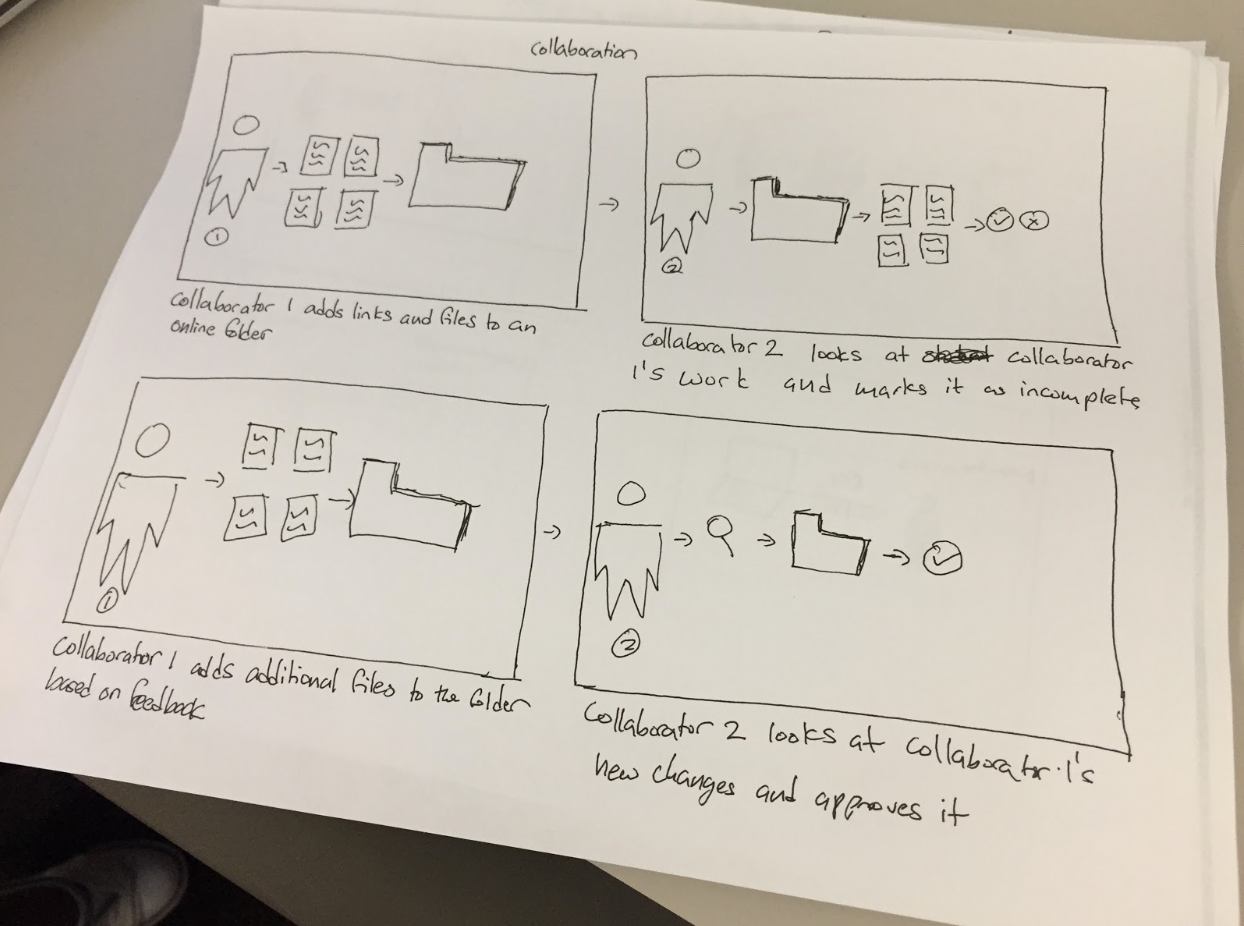 Collaboration
①
Collaborator 1 adds links and files to an
online folder
②
Collaborator 2 looks at collaborator
1's work and marks it as incomplete
①
Collaborator 1 adds additional files to the folder
based on feedback
②
Collaborator 2 looks at collaborator 1's
new changes and approves it